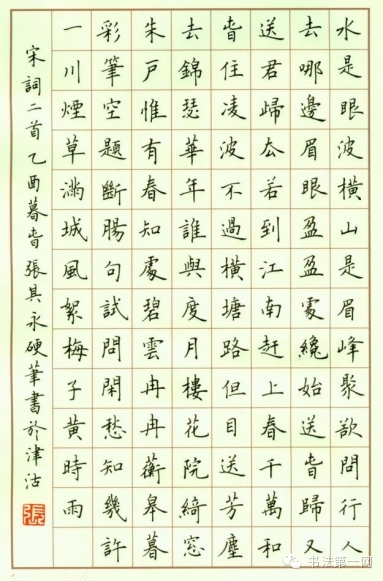 水是眼波橫山是眉峰聚欲問行人
去哪邊眉眼盈盈處纔始送旾歸又
送君歸厺若到江南赶上春千萬和
旾住凌波不過橫塘路但目送芳塵
去錦瑟華年誰與度月樓花院綺窓
朱戶惟有春知處碧雲冉冉蘅皋暮
彩筆空題斷腸句試問閑愁知幾許
一川煙草滿城風絮梅子黃時雨
宋詞二首乙酉暮旾張其永硬筆書於津沽
張
书法第一网